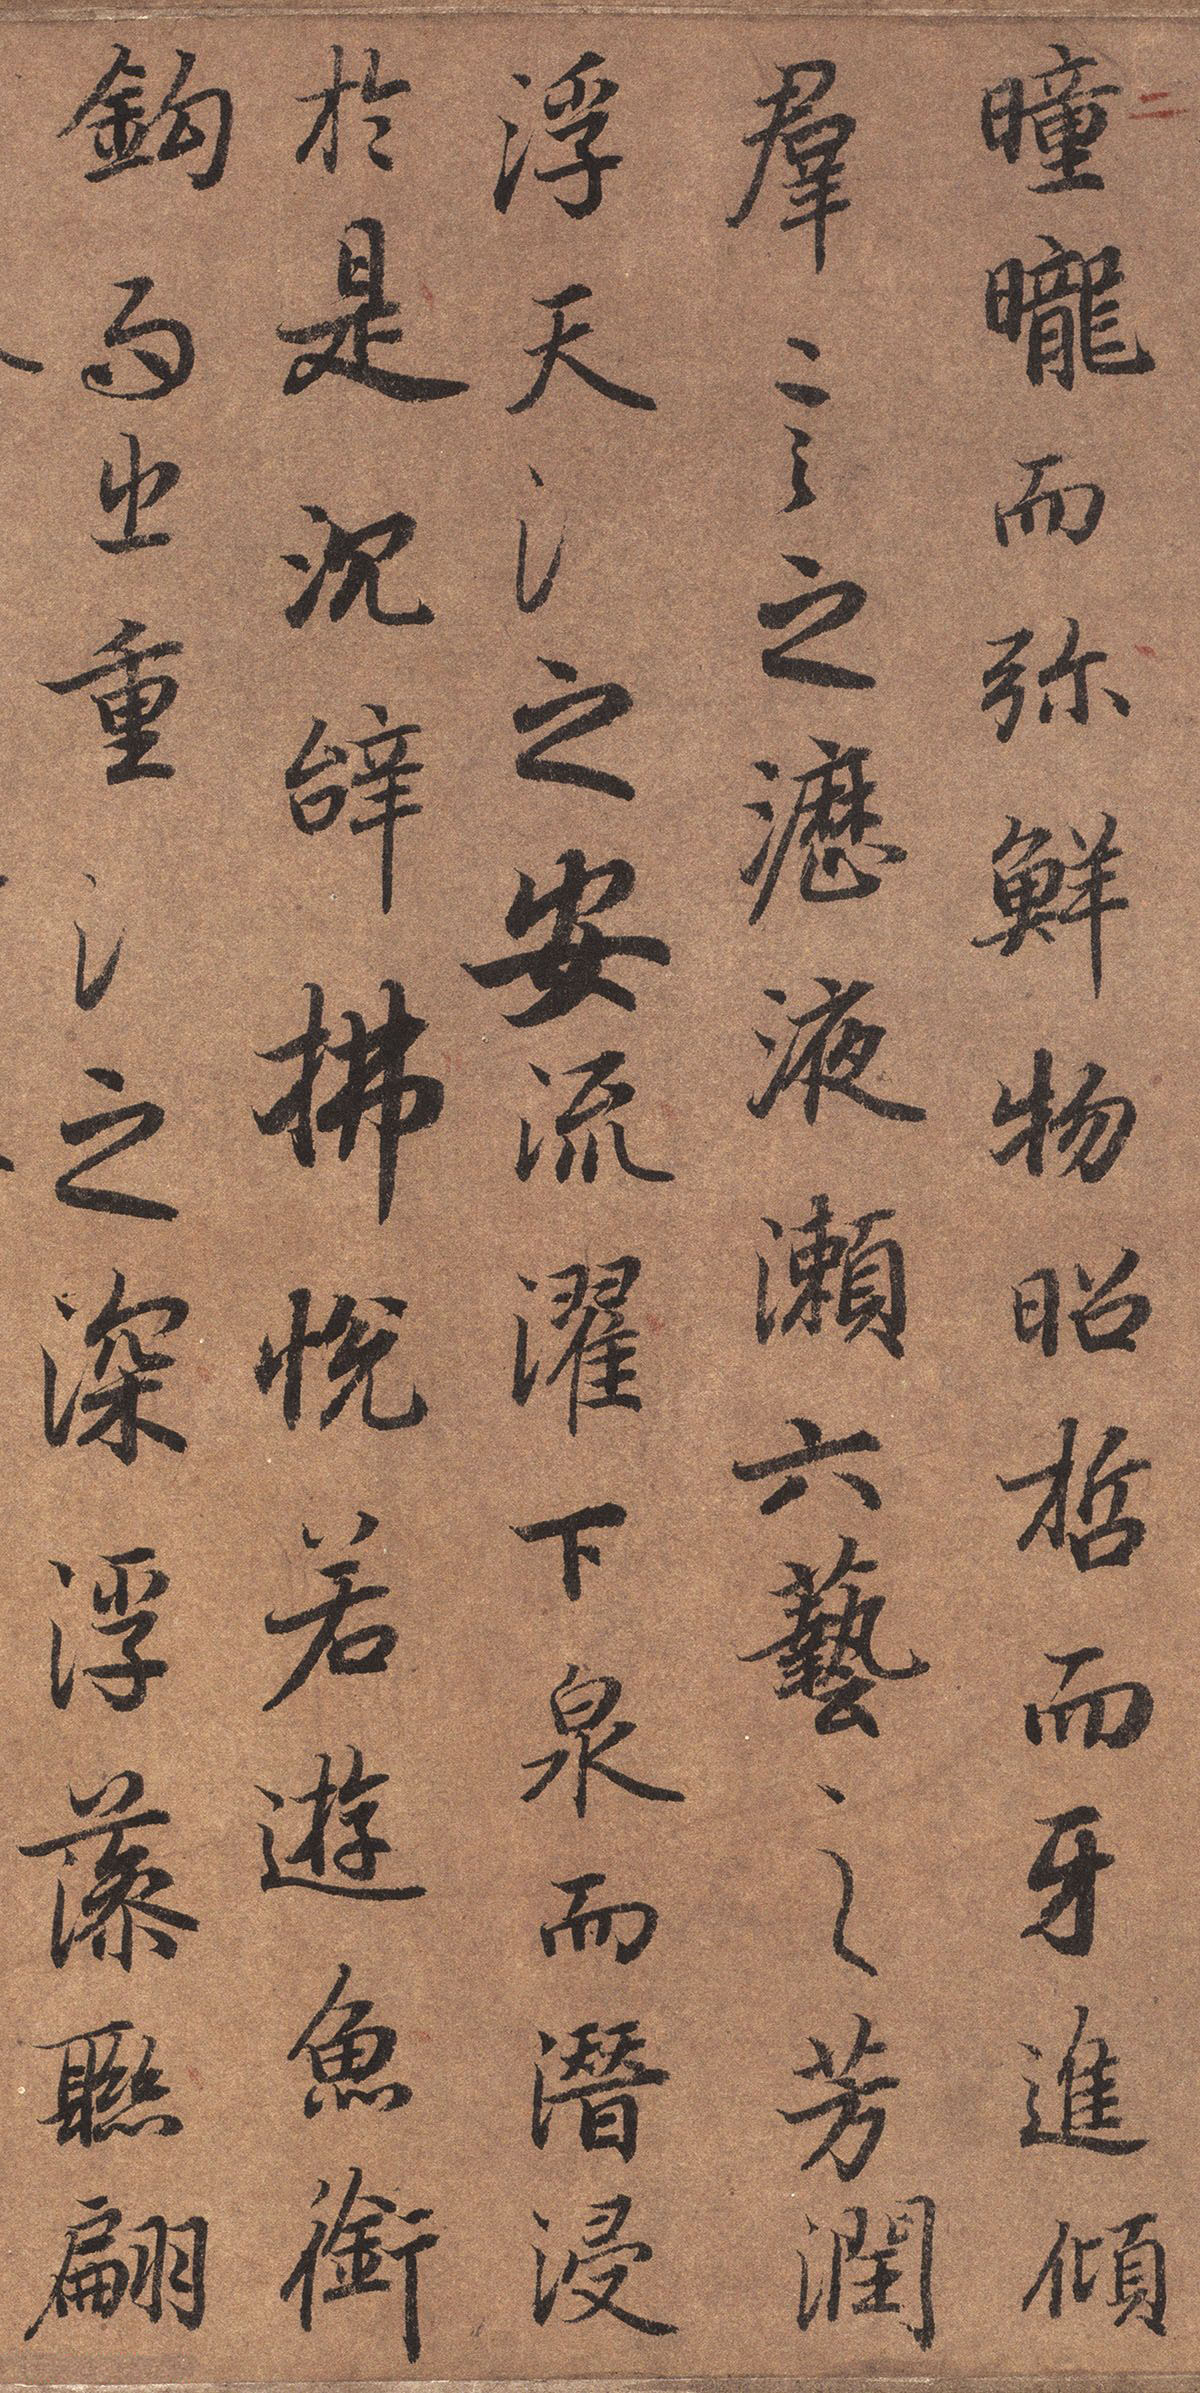 曈曨而弥鮮物昭哲而牙進傾
羣言之瀝液瀨六藝之芳潤
浮天淵之安流濯下泉而潛浸
於是沉辝拂悅若遊魚銜
鈎而出重淵之深浮藻聮翩